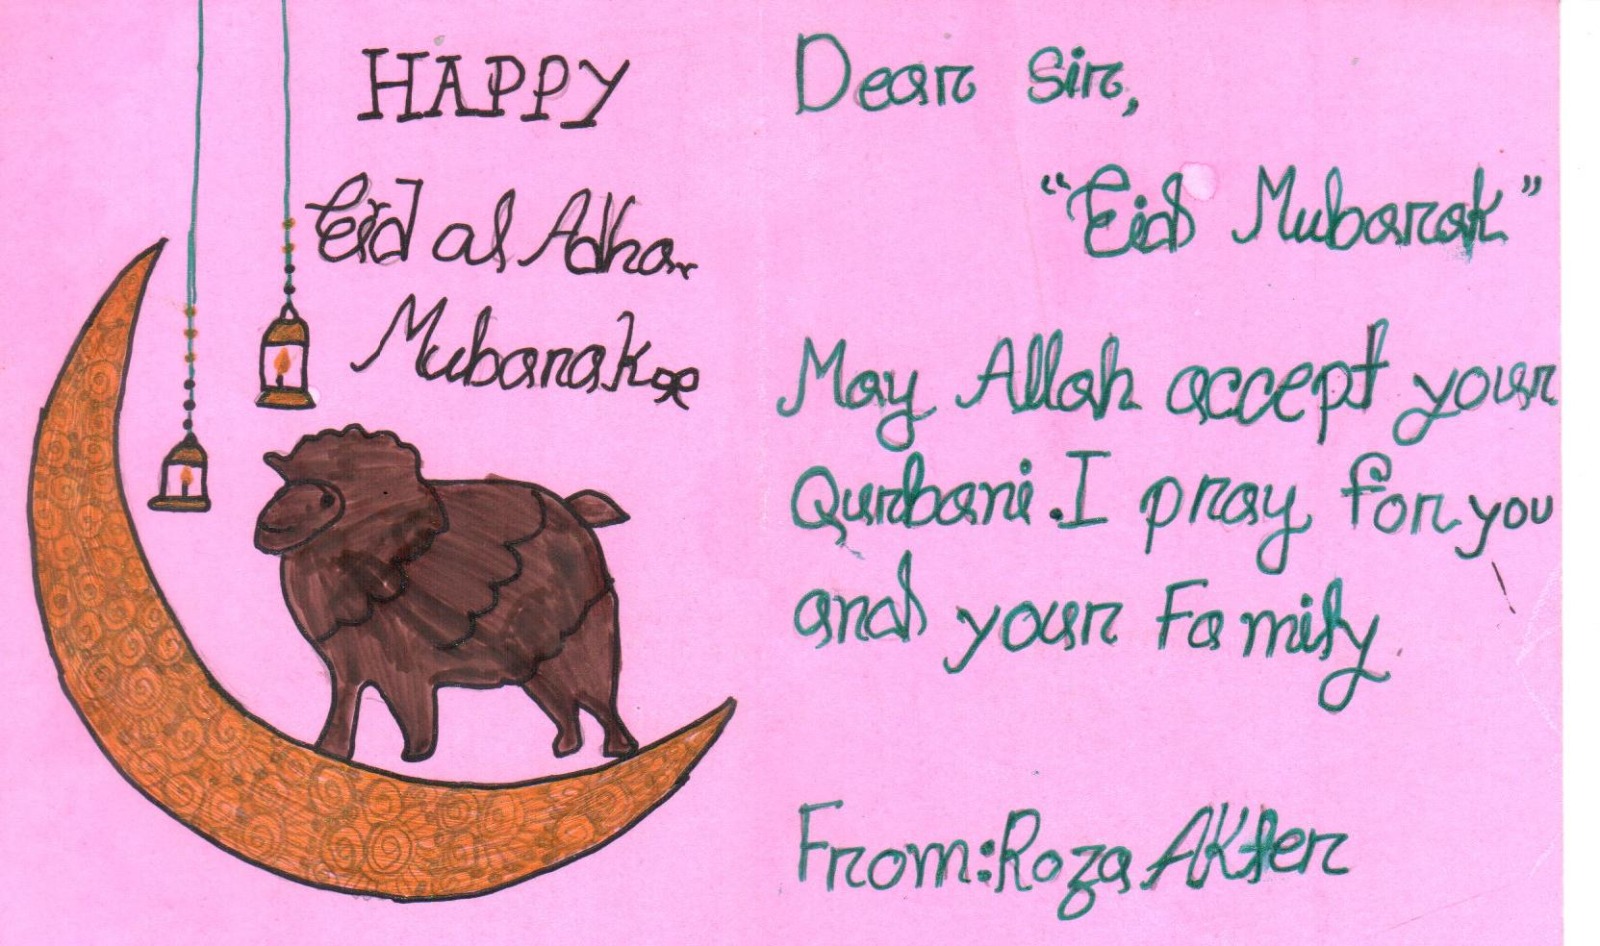 HAPPY
Eid al Adha
Mubarak
Dear Sir,
"Eid Mubarak"
May Allah accept your
Qurbani. I pray for you
and your Family.
From: Roza Akter